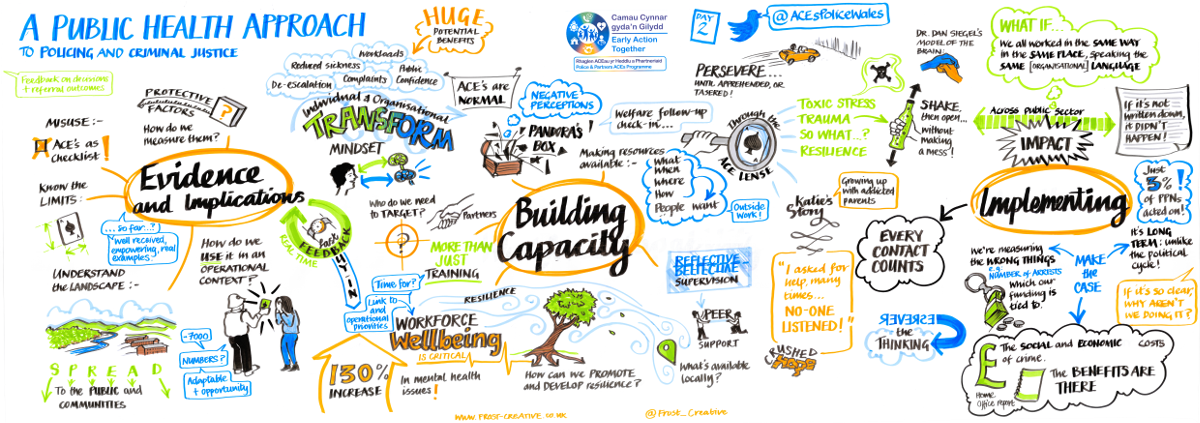 A PUBLIC HEALTH APPROACH
TO POLICING AND CRIMINAL JUSTICE
Feedback on decisions
+ referral outcomes
MISUSE :-
ACE's as
checklist!
PROTECTIVE
FACTORS
?
How do we
measure them?
Know the
LIMITS :-
Evidence
and Implications
... so far..?
well received,
empowering, real
examples~
UNDERSTAND
the LANDSCAPE :-
How do we
USE it in an
OPERATIONAL
CONTEXT?
SPREAD
To the PUBLIC and
COMMUNITIES
~7000
NUMBERS?
Adaptable
+ opportunity
HUGE
POTENTIAL
BENEFITS
Workloads
Reduced sickness
Public
Confidence
Complaints
De-escalation
Individual & Organisational
TRANSFORM
MINDSET
ACE's are
NORMAL
NEGATIVE
PERCEPTIONS
PANDORA'S
BOX
Who do we need
to TARGET?
Partners
?
MORE THAN
JUST
TRAINING
REAL TIME
FEEDBACK
BUY IN
Time for?
Link to
and
operational
priorities
RESILIENCE
WORKFORCE
Wellbeing
IS CRITICAL
130%
INCREASE
In mental health
issues!
How can we PROMOTE
and DEVELOP resilience?
Building
Capacity
Camau Cynnar
gyda'n Gilydd
Early Action
Together
Rhaglen ACEau yr Heddlu a Phartneriaid
Police & Partners ACEs Programme
DAY
2
@ACEsPoliceWales
PERSEVERE...
UNTIL APPREHENDED, OR
TASERED!
Welfare follow-up
check-in...
Making resources
available :-
What
When
Where
How
People want
Outside
Work!
Through the
ACE LENSE
TOXIC STRESS
TRAUMA
SO WHAT..?
RESILIENCE
DR. DAN SIEGEL'S
MODEL OF THE
BRAIN
SHAKE,
then open...
without
making
a mess!
Katie's
Story
Growing up
with addicted
parents
"I asked for
help, many
times...
NO-ONE
LISTENED!"
REFLECTIVE
SUPERVISION
PEER
SUPPORT
What's available
locally?
EVERY
CONTACT
COUNTS
REVERSE
the
THINKING
WHAT IF...
We all worked in the SAME WAY
in the SAME PLACE, speaking the
SAME [ORGANISATIONAL] LANGUAGE
Across public sector
IMPACT
If it's not
written down,
it DIDN'T
HAPPEN!
Implementing
Just
3%
of PPNs
acted on!
It's LONG
TERM: unlike
the political
cycle!
We're measuring
the WRONG THINGS
e.g.
NUMBER OF ARRESTS
Which our
funding is
tied to.
MAKE
the
CASE
If it's so clear,
WHY AREN'T
WE DOING IT?
£
The SOCIAL and ECONOMIC COSTS
of crime.
Home
Office report
The BENEFITS ARE
THERE
WWW.FROST-CREATIVE.CO.UK
@Frost_Creative